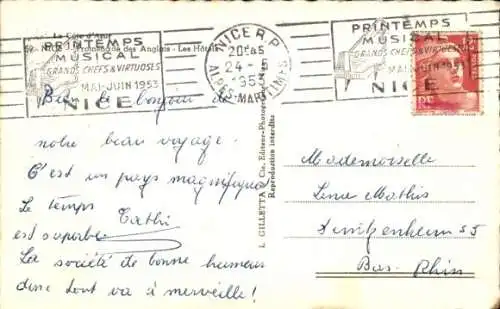 La Côte d'Azur
59. - NICE - Promenade des Anglais - Les Hôtels
PRINTEMPS
MUSICAL
GRANDS CHEFS & VIRTUOSES
MAI-JUIN 1953
NICE
NICE R.P.
20H45
24 - 5
1953
ALPES-MARITIMES
PRINTEMPS
MUSICAL
GRANDS CHEFS & VIRTUOSES
MAI-JUIN 1953
NICE
bonjour de
notre beau voyage.
C'est un pays magnifique
Le temps
est superbe
La société de bonne humeur
donc tout va à merveille!
L. GILLETTA & Cie, Éditeur-Photographe, Nice
Reproduction interdite
Mademoiselle
Mathis
Bas-Rhin